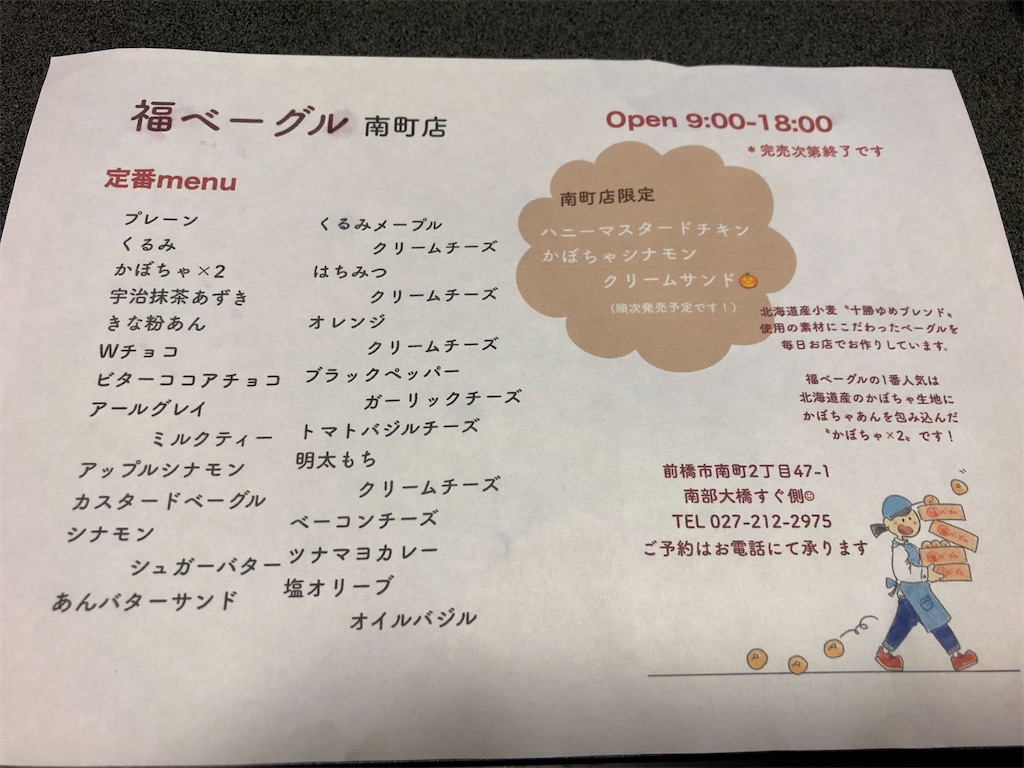 福ベーグル 南町店
定番menu
プレーン
くるみ
かぼちゃ×2
宇治抹茶あずき
きな粉あん
Wチョコ
ビターココアチョコ
アールグレイ
ミルクティー
アップルシナモン
カスタードベーグル
シナモン
シュガーバター
あんバターサンド
くるみメープル
クリームチーズ
はちみつ
クリームチーズ
オレンジ
クリームチーズ
ブラックペッパー
ガーリックチーズ
トマトバジルチーズ
明太もち
クリームチーズ
ベーコンチーズ
ツナマヨカレー
塩オリーブ
オイルバジル
Open 9:00-18:00
*完売次第終了です
南町店限定
ハニーマスタードチキン
かぼちゃシナモン
クリームサンド🎃
(順次発売予定です!)
北海道産小麦〝十勝ゆめブレンド〟
使用の素材にこだわったベーグルを
毎日お店でお作りしています。
福ベーグルの1番人気は
北海道産のかぼちゃ生地に
かぼちゃあんを包み込んだ
〝かぼちゃ×2〟です!
前橋市南町2丁目47-1
南部大橋すぐ側☺
TEL 027-212-2975
ご予約はお電話にて承ります